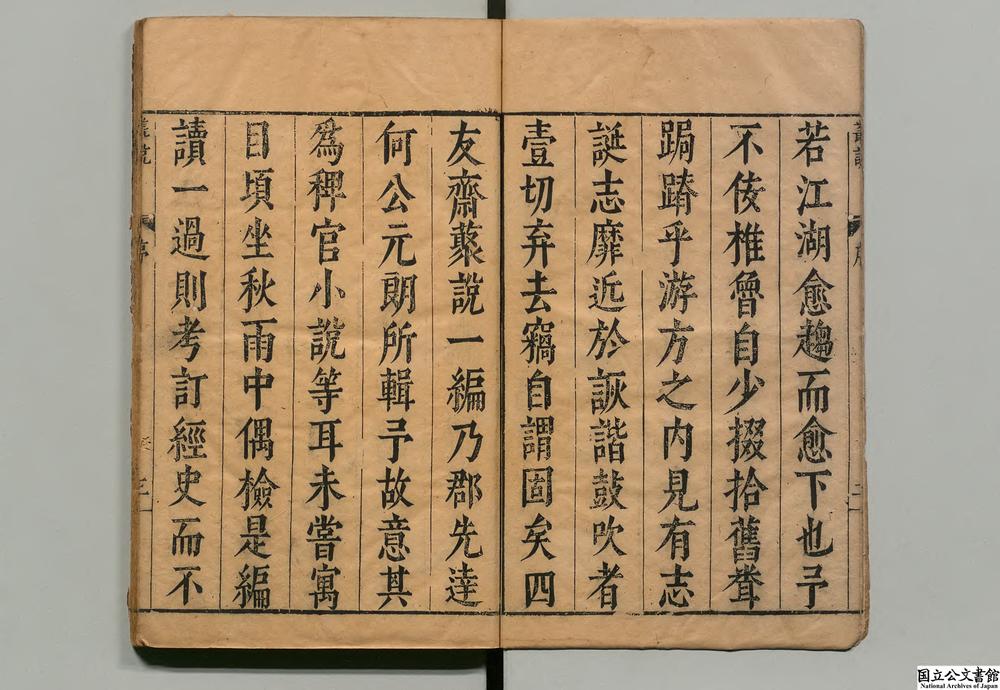 若江湖愈趨而愈下也予
不佞椎魯自少掇拾舊聳
跼蹐乎游方之内見有志
誕志靡近於詼諧鼓吹者
壹切弃去竊自謂固矣四
友齋藂說一編乃郡先達
何公元朗所輯予故意其
爲稗官小說等耳未嘗寓
目頃坐秋雨中偶檢是編
讀一過則考訂經史而不
国立公文書館
National Archives of Japan